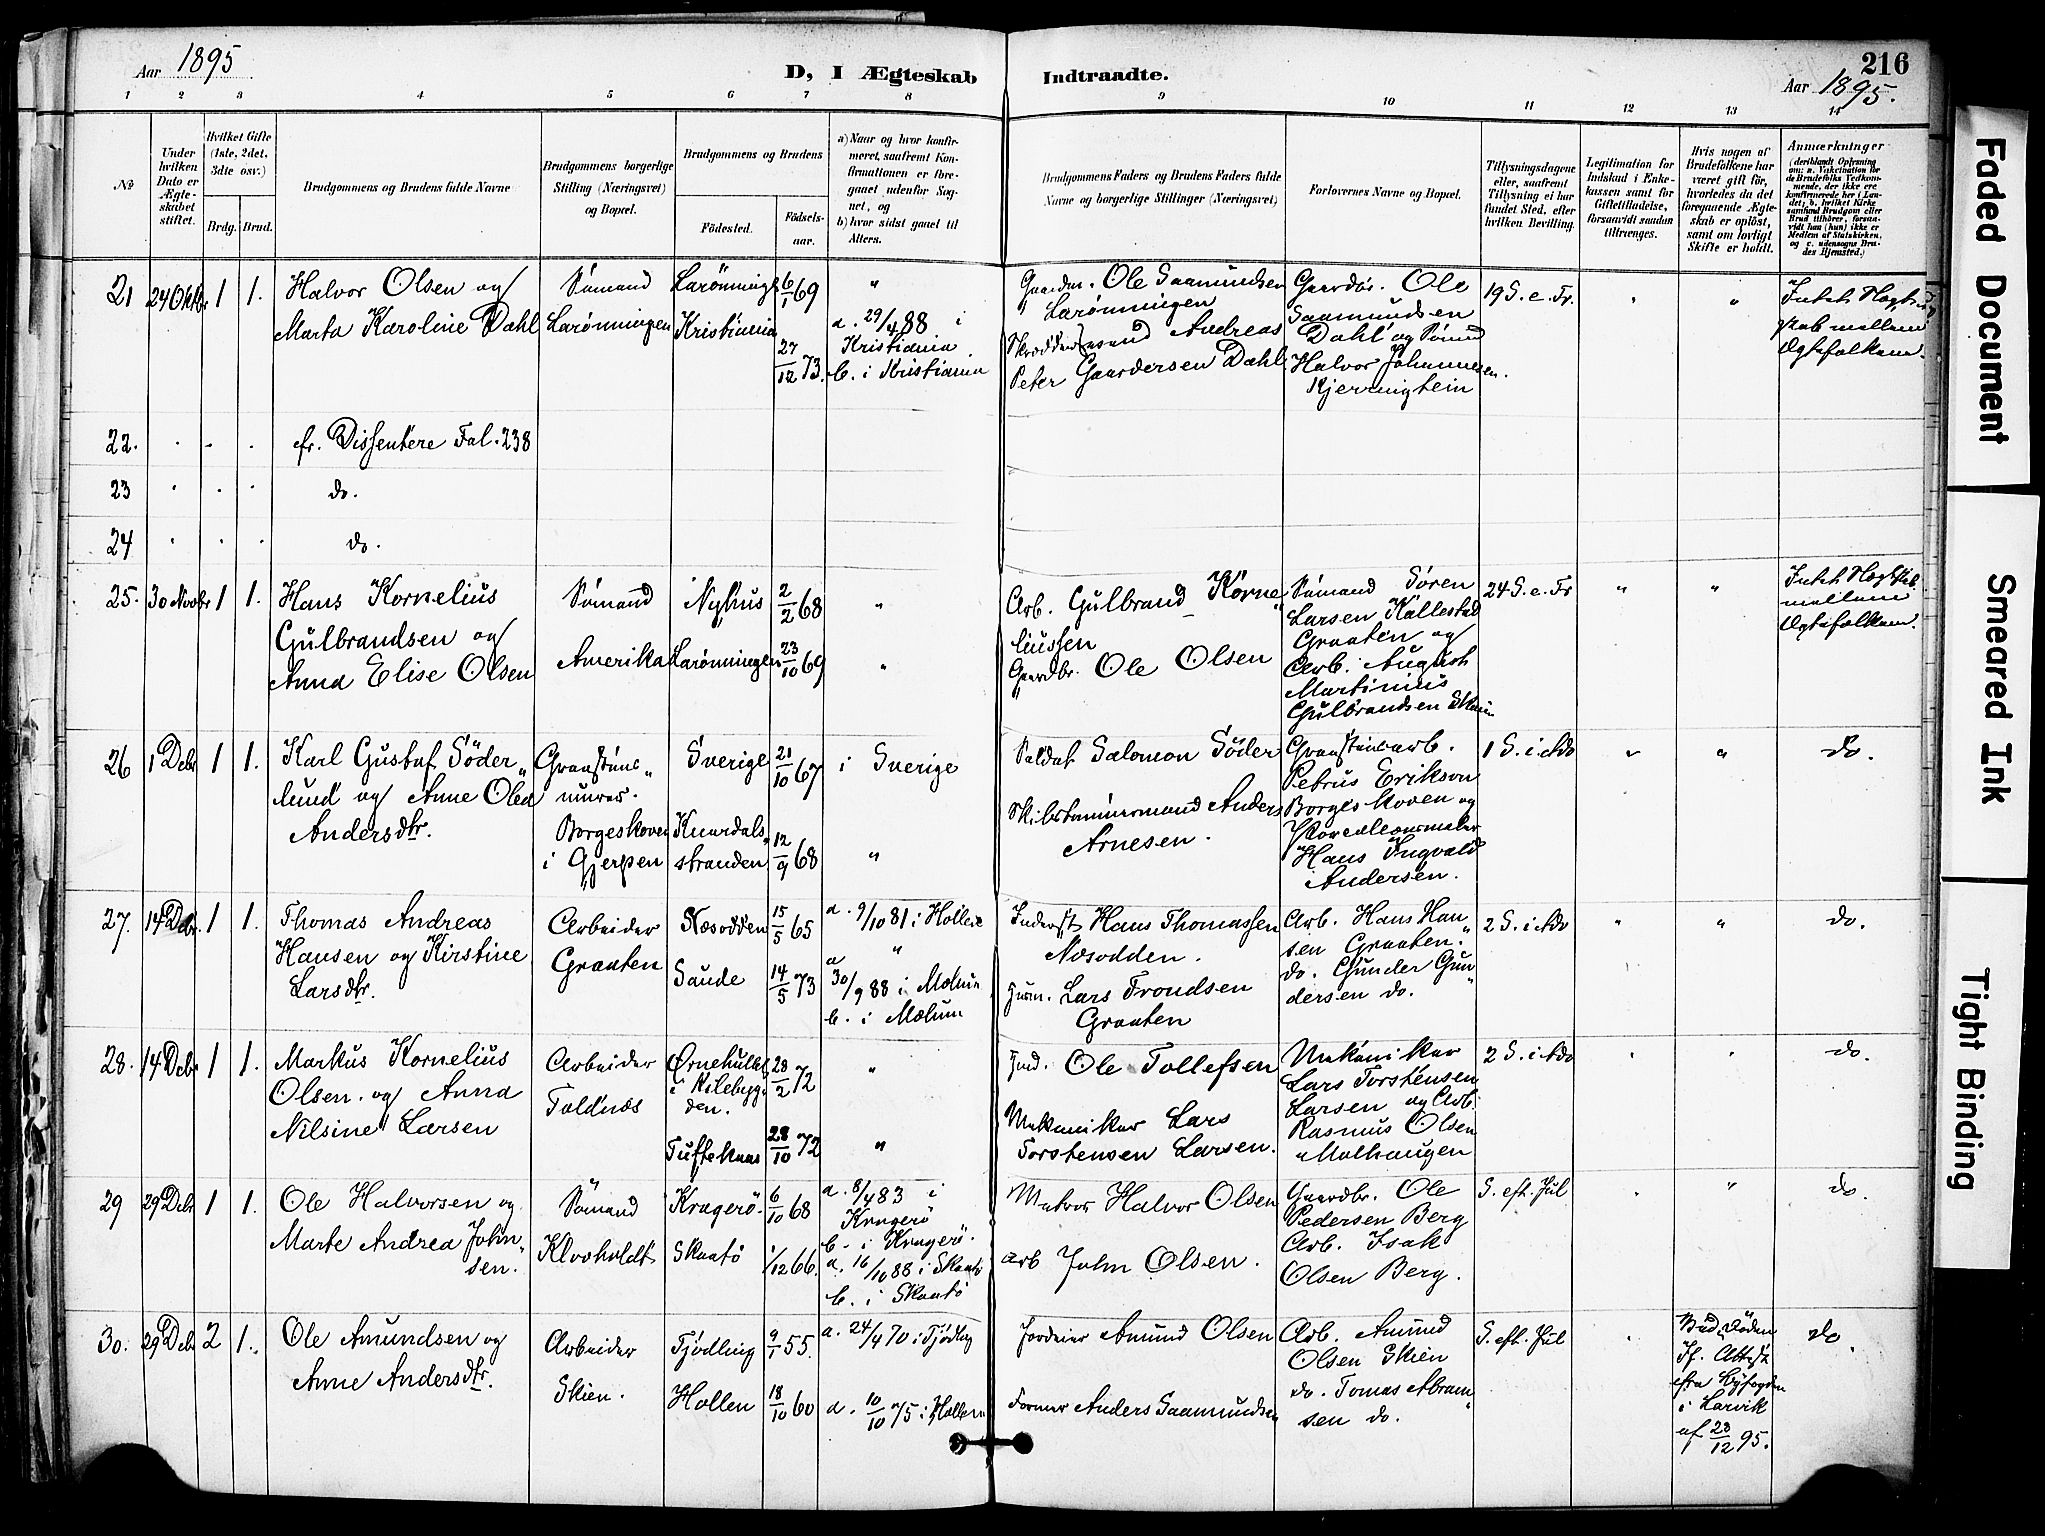 Aar 1895
D, I Ægteskab Indtraadte.
216
Aar 1895.
1 2 3 4 5 6 7 8 9 10 11 12 13 14
No
Under hvilken Dato er Ægteskabet stiftet.
Hvilket Gifte (1ste, 2det, 3die osv.)
Brdg. Brud.
Brudgommens og Brudens fulde Navne
Brudgommens borgerlige Stilling (Næringsvei) og Bopæl.
Brudgommens og Brudens
Fødested.
Fødselsaar.
a) Naar og hvor konfirmeret, saafremt Konfirmationen er foregaaet udenfor Sognet, og
b) hvor sidst gaaet til Alters.
Brudgommens Faders og Brudens Faders fulde Navne og borgerlige Stillinger (Næringsvei)
Forlovernes Navne og Bopæl.
Tillysningsdagene eller, saafremt Tillysning ei har fundet Sted, efter hvilken Bevilling.
Legitimation for Indskud i Enkekassen samt for Giftetilladelse, forsaavidt saadan tiltrænges.
Hvis nogen af Brudefolkene har været gift før, hvorledes da det foregaaende Ægteskab er opløst, samt om lovligt Skifte er holdt.
Anmærkninger
(deriblandt Oplysning om: a. Vakcination for de Brudefolks Vedkommende, der ikke ere konfirmerede her i Landet; b. hvilket Kirkesamfund Brudgom eller Brud tilhører, forsaavidt han (hun) ikke er Medlem af Statskirken, og c. udensogns Brudes Hjemsted.)
21 24 Oktbr 1 1. Halvor Olsen og
Marta Karoline Dahl
Sømand
Larønningen
Larønningen
Kristiania
6/1 69
27/12 73.
"
a. 29/4 88 i
Kristiania.
b. i Kristiania
Gaardm. Ole Saamundsen
Larønningen
Skræddersvend Andreas
Peter Gaardersen Dahl
Gaardbr. Ole
Saamundsen
Dahl og Sømd
Halvor Johannesen.
Kjerringtein
19 S. e. Tr.
" "
Intet Slegtskab mellem
Ægtefolkene.
22. cfr. Dissentere Fol. 238
23 do.
24 do.
25. 30 Novbr 1 1. Hans Kornelius
Gulbrandsen og
Anna Elise Olsen
Sømand
Amerika
Nyhus
Larønningen
2/2 68
23/10 69
"
"
Arb. Gulbrand Korneliussen
Gaardbr. Ole Olsen
Sømand Søren
Larsen Kallestad
Graaten og
Arb. August
Martinius
Gulbrandsen Skien
24 S. e. Tr
" "
Intet Slegtskab
mellem
Ægtefolkene.
26 1 Debr 1 1. Karl Gustaf Söderlund og Anne Olea
Andersdtr.
Graastensmurer.
Borgeskoven
i Gjerpen
Sverige
Knardalsstranden
21/10 67
12/9 68
i Sverige
"
Soldat Salomon Söder
Skibstømmermand Anders
Arnesen.
Graastensarb.
Petrus Erikson
Borgeskoven og
Porcellænsmaler
Hans Ingvald
Andersen.
1 S. i Adv
" "
do.
27. 14 Debr. 1 1. Thomas Andreas
Hansen og Kirstine
Larsdtr.
Arbeider
Graaten
Næsodden
Saude
15/5 65
14/5 73
a. 9/10 81 i Hollen
"
a 30/9 88 i Mælum
b. i Mælum
Inderst Hans Thomassen
Næsodden.
Husm. Lars Trondsen
Graaten
Arb. Hans Hansen Graaten.
do. Gunder Gundersen do.
2 S. i Adv
" "
do.
28. 14 Debr 1 1. Markus Kornelius
Olsen. og Anna
Nilsine Larsen
Arbeider
Toldnæs
Ørnehullet
i Kilebygden.
Tuftekaas
28/2 72
28/10 72
"
"
Ind. Ole Tollefsen
Mekaniker Lars
Torstensen Larsen.
Mekaniker
Lars Torstensen
Larsen og Arb.
Rasmus Olsen
Molhaugen
2 S. i Adv
do.
29 29 Debr 1 1. Ole Halvorsen og
Marte Andrea Johnsen.
Sømand
Klovholdt
Kragerö.
Skaatö
6/10 68
1/12 66.
a. 8/4 83 i
Kragerö
b. i Kragerö.
a. 16/10 88 i Skaatö
b. i Skaatö
Matros Halvor Olsen
Arb John Olsen.
Gaardbr. Ole
Pedersen Berg
Arb. Isak
Olsen Berg.
S. eft. Jul
"
do.
30. 29 Debr 2 1. Ole Amundsen og
Anne Andersdtr.
Arbeider
Skien.
Tjødling
Hollen
9/1 55.
18/10 60
a. 24/4 70 i Tjødling
a. 10/10 75 i Hollen
Jordeier Amund Olsen
Former Anders Saamundsen
Arb. Amund
Olsen Skien
do. Tomas Abramsen do.
S. eft. Jul
Ved Døden
If. Attest
fra Byfogden
i Larvik
af 23/12 95.
do
Faded Document
Smeared Ink
Tight Binding